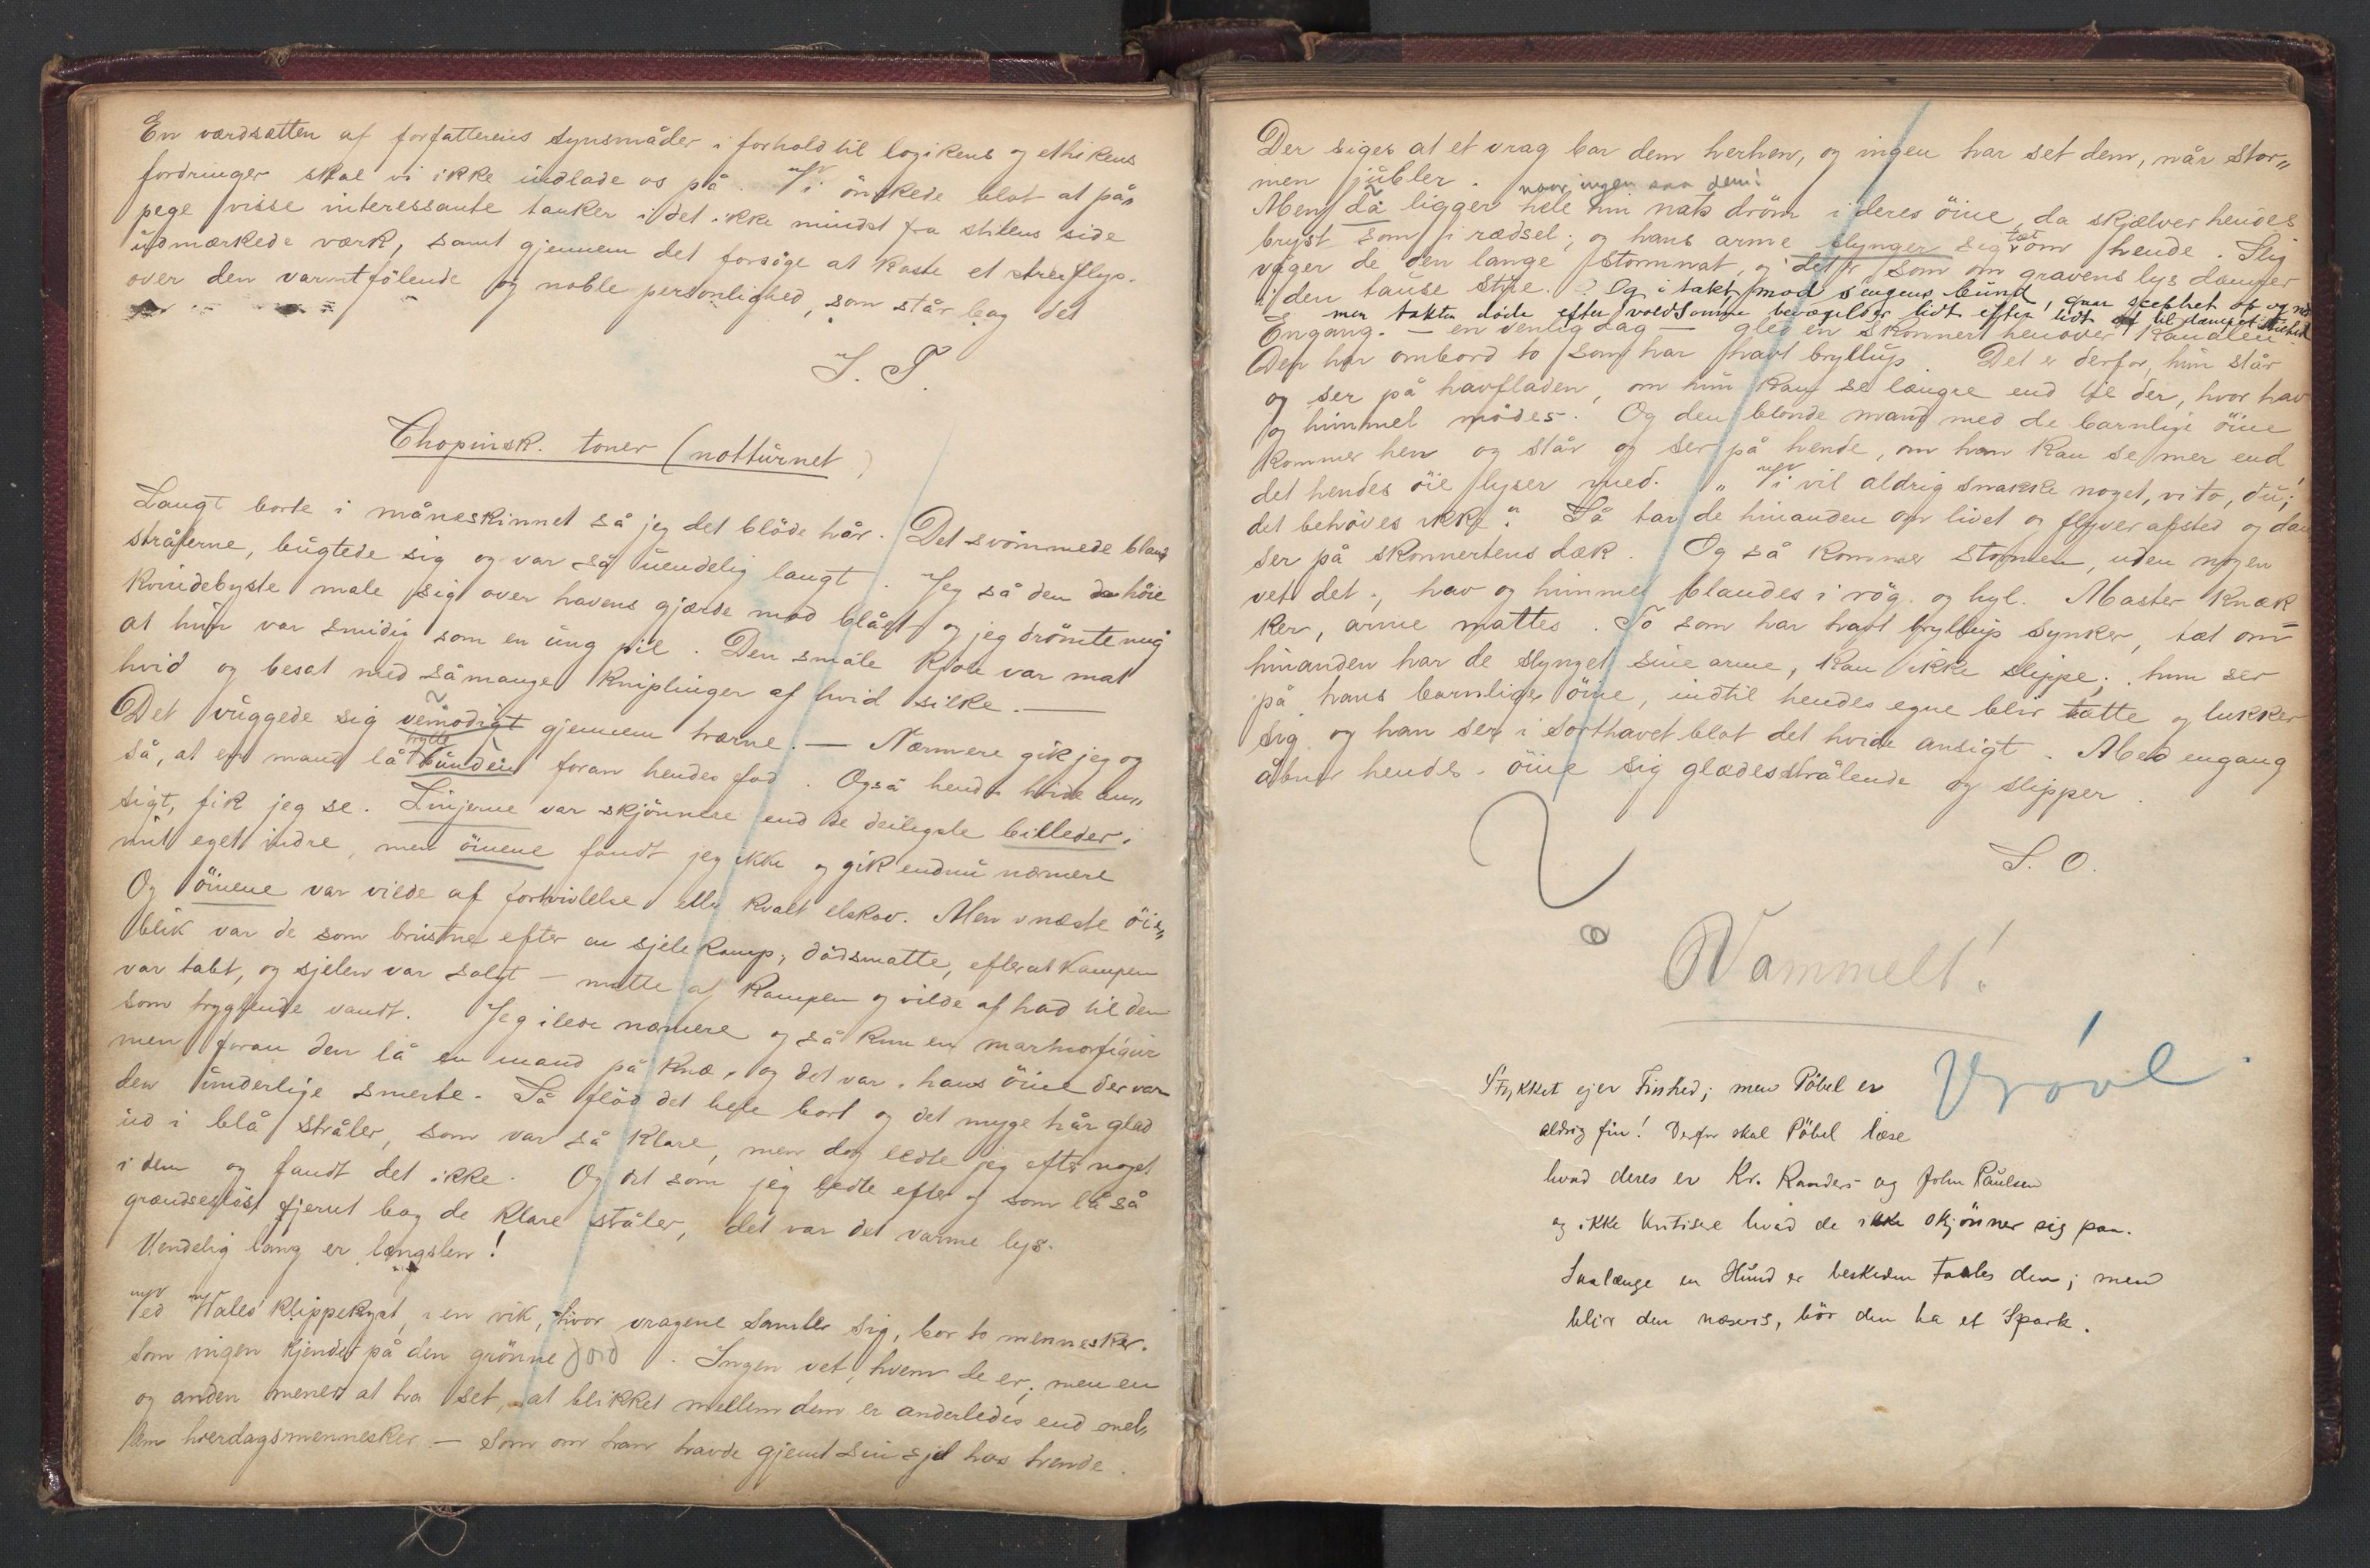 En værdsætten af forfatterens synsmåder i forhold til logikens og ethikens
fordringer skal vi ikke indlade os på. Vi önskede blot at på„
pege visse interessante tanker i det ikke mindst fra stilens side
udmærkede værk, samt gjennem det forsöge at kaste et streiflys
over den varmtfölende og noble personlighed, som står bag det
S. P.
Chopinsk. toner (notturnet)
Langt borte i måneskinnet så jeg det blöde hår. Det svömmede bland
strålerne, bugtede sig og var så uendelig langt. Jeg så den höie
kvindebyste male sig over havens gjærde mod blået og jeg drömte mig
at hun var smidig som en ung pil. Den smale kjole var mat
hvid og besat med såmange kniplinger af hvid silke. —
Det vuggede sig vemodigt gjennem trærne. — Nærmere gik jeg og
så, at en mand lå bunden foran hendes fod. Også hendes hvide an„
sigt, fik jeg se. Linjerne var skjönnere end de deiligste billeder i
mit eget indre, men öinene fandt jeg ikke og gik endnu nærmere
Og öinene var vilde af fortvivlelse eller kvalt elskov. Men næste öie„
blik var de som brustne efter en sjelekamp, dödsmatte, efterat kampen
var tabt, og sjelen var solgt — matte af kampen og vilde af had til den
som tryglende vandt. Jeg ilede nærmere og så kun en marmorfigur
men foran den lå en mand på knæ, og det var hans öine der var
den underlige smerte. Så flöd det hele bort og det myge hår gled
ud i blå stråler, som var så klare, men dog ledte jeg efter noget
i dem og fandt det ikke. Og det som jeg ledte efter og som lå så
grændseslöst fjernt bag de klare ståler, det var det varme lys.
Uendelig lang er længslen!
Ved Wales' klippekyst, i en vik, hvor vragene samler sig, bor to mennesker.
som ingen kjender på den grönne jord. Ingen vet, hvem de er, men en
og anden mener at ha set, at blikket mellem dem er anderledes end mel„
lem hverdagsmennesker — som om han havde gjemt sin sjel hos hende.
Der siges at et vrag bar dem herhen, og ingen har set dem, når stor„
men jubler. naar ingen saa dem!
Men da ligger hele hin nats dröm i deres öine, da skjælver hendes
bryst som i rædsel; og hans arme slynger sig tæt om hende. Slig
våger de den lange stormnat, og det er som om gravens lys dæmrer
i den tause stue. Og i takt mod sengens bund, gaar sceptret op og ned
mer takten döde efter voldsomme bevægelser lidt efter lidt til dæmpet stilhed
Engang. — en venlig dag — gled en skonnert henover kanalen.
Den har ombord to som har havt bryllup. Det er derfor, hun står
og ser på havfladen, om hun kan se længre end til der, hvor hav
og himmel mödes. Og den blonde mand med de barnlige öine
kommer hen og står og ser på hende, om han kan se mer end
det hendes öie lyser med. „Vi vil aldrig snakke noget, vi to, du;
det behöves ikke". Så tar de hinanden om livet og flyver afsted og dan
ser på skonnertens dæk. Og så kommer stormen, uden nogen
vet det, hav og himmel blandes i rög og hyl. Master knæk
ker, arme mattes. To som har havt bryllup synker, tæt om
hinanden har de slynget sine arme, kan ikke slippe; hun ser
på hans barnlige öine, indtil hendes egne blir trætte og lukker
sig og han ser i sorthavet blot det hvide ansigt. Med engang
åbner hendes öine sig glædesstrålende og slipper.
S. O.
?
Vammelt!
Vrövl
Stykket ejer Finhed; men Pöbel er
aldrig fin! Derfor skal Pöbel læse
hvad deres er Kr. Randers og John Paulsen
og ikke kritisere hvad de ikke skjönner sig paa.
Saalænge en Hund er beskeden taales den; men
blir den næsvis, bör den ha et Spark.